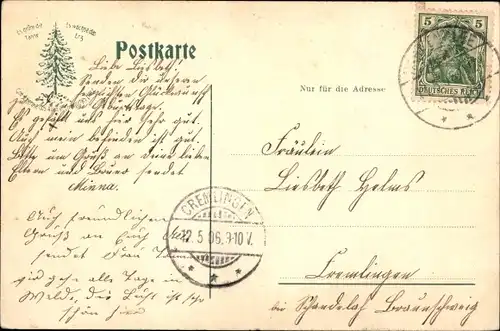 Postkarte
Nur für die Adresse
5 5
DEUTSCHES REICH
Liebe Lisbeth!
Senden dir unsern
herzlichsten Glückwunsch
zum Geburtstage.
Es gefällt uns hier sehr gut.
Auch mein befinden ist gut.
im Gruß an deine lieben
Eltern und sendet
Minna.
Auch freundlichen
Gruß an Euch
sendet Frau
wir gehe alle Tage in
Walde, die Luft ist sehr
schön hier
CREMLINGEN
12.5.06.9-10V.
Fräulein
Liesbeth Helms
Cremlingen
bei Schandelah Braunschweig